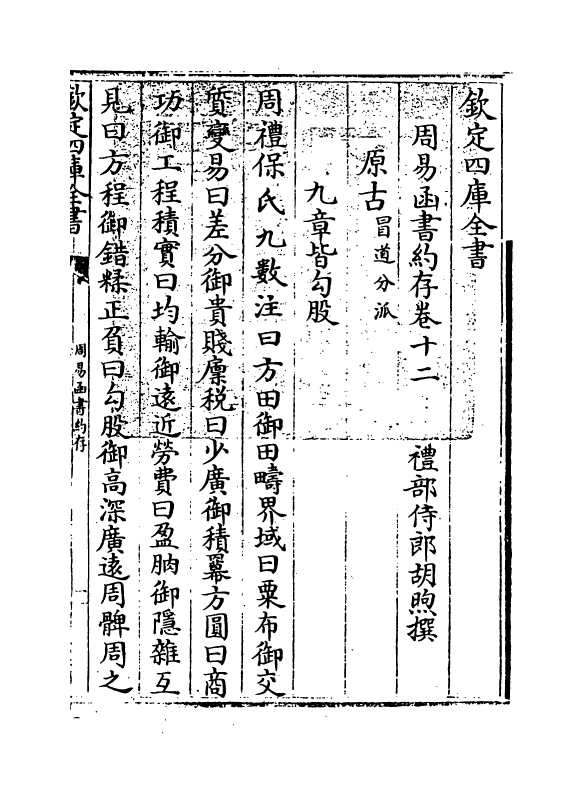 欽定四庫全書
周易函書約存卷十二　禮部侍郎胡煦撰
原古冒道分派
九章皆勾股
周禮保氏九數注曰方田御田疇界域曰粟布御交
質變易曰差分御貴賤廩稅曰少廣御積冪方圓曰商
功御工程積實曰均輸御遠近勞費曰盈朒御隱雜互
見曰方程御錯糅正負曰勾股御高深廣遠周髀周之
欽定四庫全書
周易函書約存